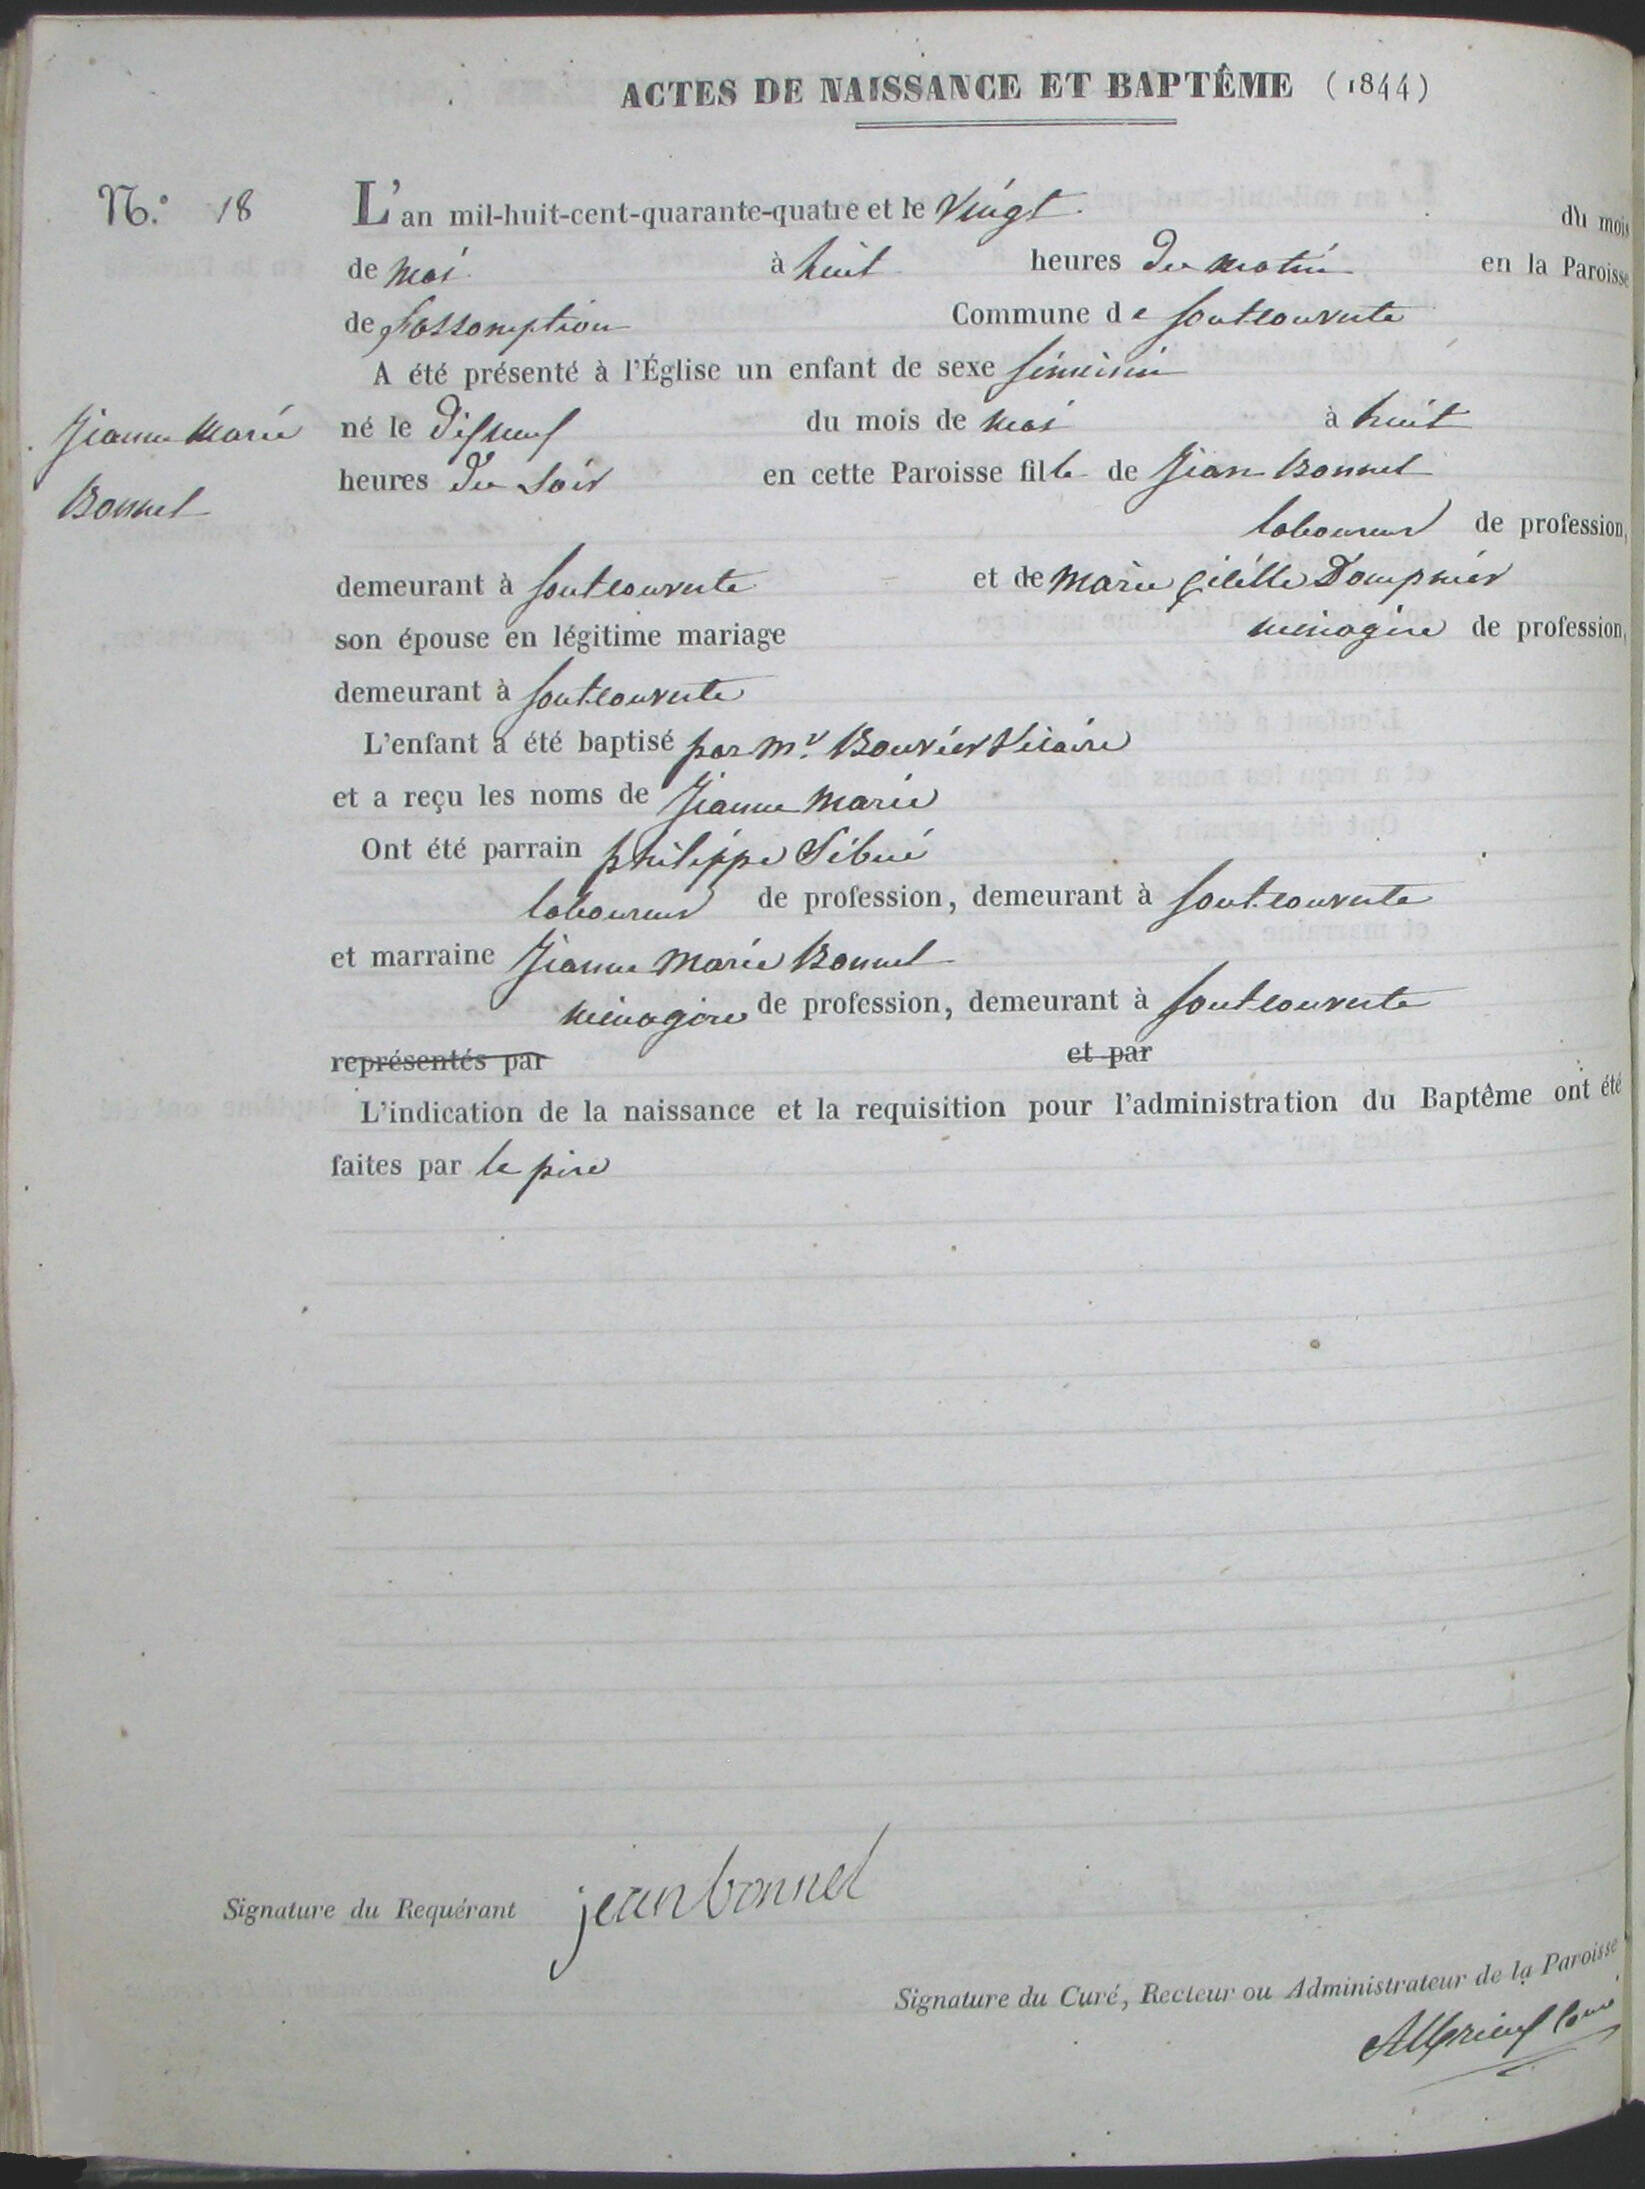 ACTES DE NAISSANCE ET BAPTÊME (1844)
N.° 18
L'an mil-huit-cent-quarante-quatre et le vingt du mois
de mai à huit heures du matin en la Paroisse
de l'assomption Commune de fontcouverte
A été présenté à l'Église un enfant de sexe féminin
Jeanne Marie
Bonnel
né le dixneuf du mois de mai à huit
heures du soir en cette Paroisse fille de Jean Bonnel
laboureur de profession,
demeurant à fontcouverte et de Marie Dompnier
son épouse en légitime mariage ménagère de profession,
demeurant à fontcouverte
L'enfant a été baptisé par Mr. Bouvier Vicaire
et a reçu les noms de Jeanne Marie
Ont été parrain philippe Sibué
laboureur de profession, demeurant à fontcouverte
et marraine Jeanne Marie Bonnel
ménagère de profession, demeurant à fontcouverte
représentés par et par
L'indication de la naissance et la requisition pour l'administration du Baptême ont été
faites par le père
Signature du Requérant jean bonnel
Signature du Curé, Recteur ou Administrateur de la Paroisse